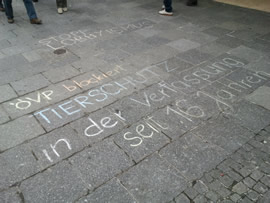 ÖVP blockiert
TIERSCHUTZ
in der Verfassung
seit 16 Jahren